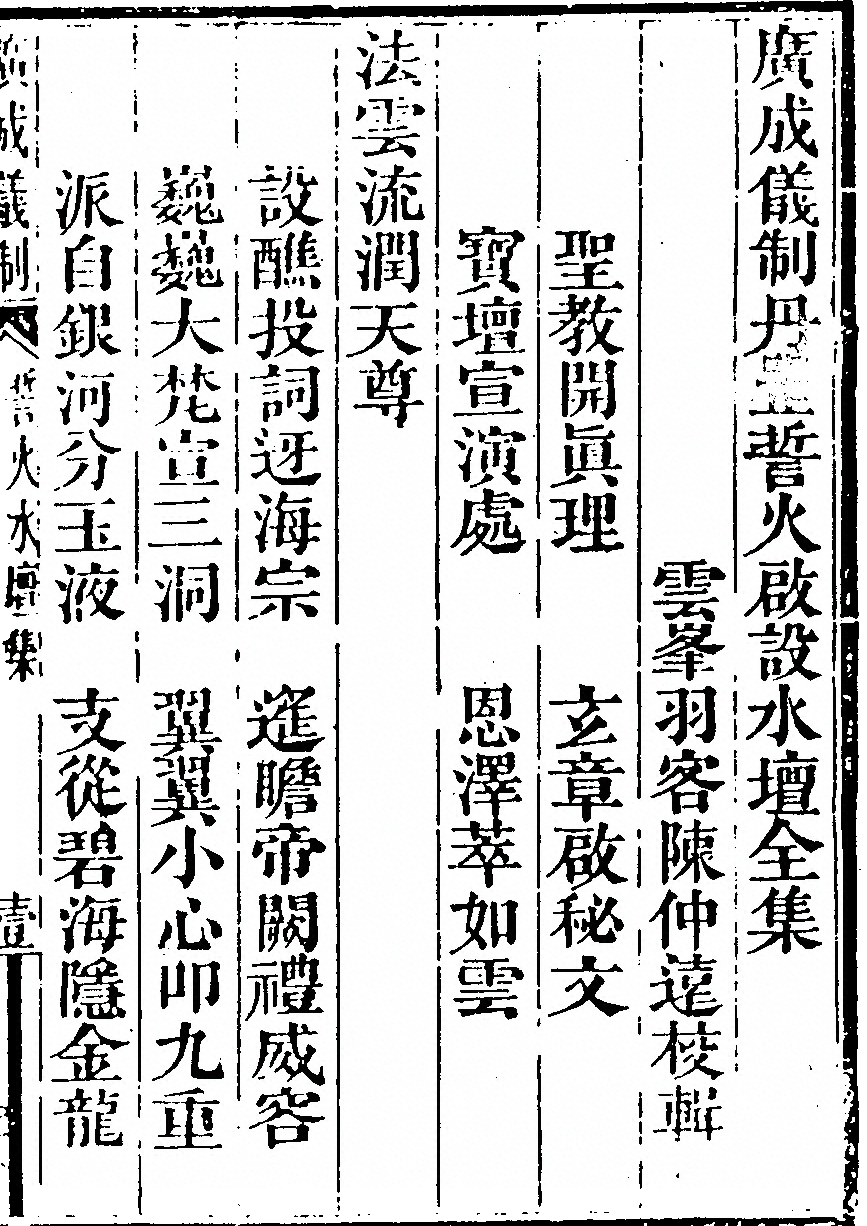 廣成儀制丹誓火啟設水壇全集
雲峯羽客陳仲遠校輯
聖教開眞理 玄章啟秘文
寶壇宣演處 恩澤萃如雲
法雲流潤天尊
設醮投詞迓海宗 遙瞻帝闕禮威容
巍巍大梵宣三洞 翼翼小心叩九重
派自銀河分玉液 支從碧海隱金龍
廣成儀制 誓火水壇集 壹